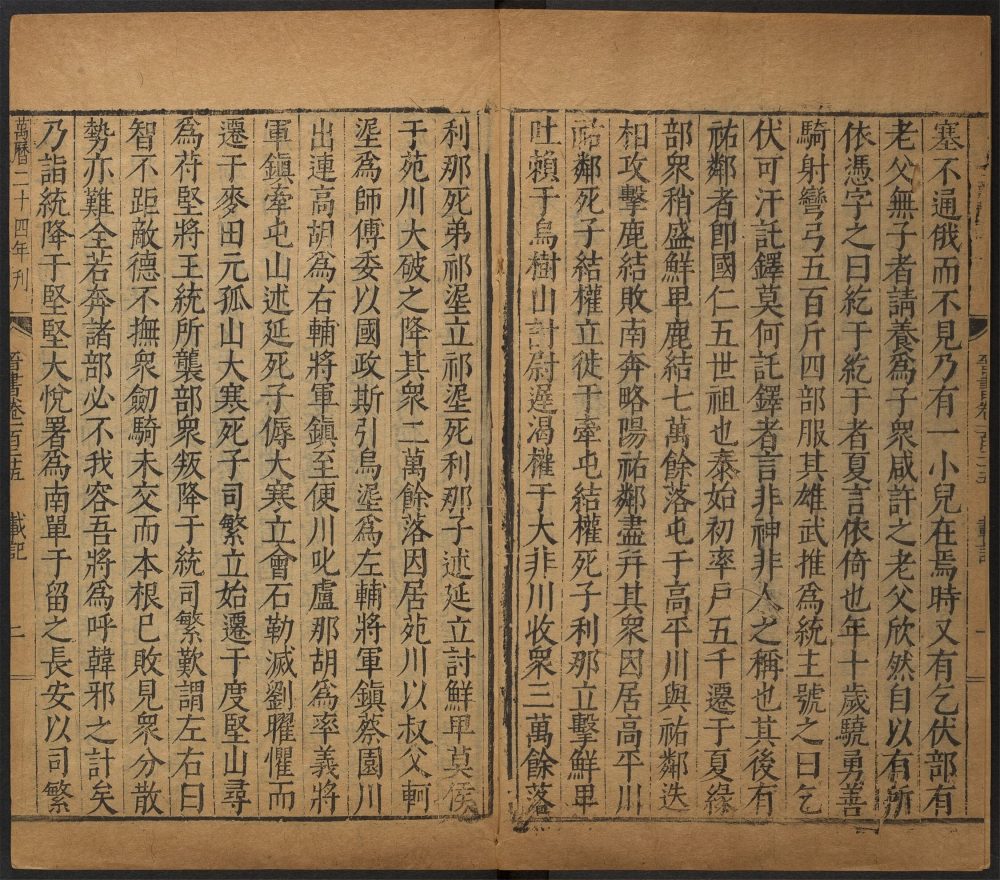 塞不通俄而不見乃有一小兒在焉時又有乞伏部有
老父無子者請養爲子衆咸許之老父欣然自以有所
依憑字之曰紇于紇于者夏言依倚也年十歲驍勇善
騎射彎弓五百斤四部服其雄武推爲統主號之曰乞
伏可汗託鐸莫何託鐸者言非神非人之稱也其後有
祐鄰者即國仁五世祖也泰始初率戶五千遷于夏緣
部衆稍盛鮮卑鹿結七萬餘落屯于高平川與祐鄰迭
相攻擊鹿結敗南奔略陽祐鄰盡幷其衆因居高平川
祐鄰死子結權立徙于牽屯結權死子利那立擊鮮卑
吐賴于烏樹山討尉遲渴權于大非川收衆三萬餘落
利那死弟祁埿立祁埿死利那子述延立討鮮卑莫侯
于苑川大破之降其衆二萬餘落因居苑川以叔父軻
埿爲師傅委以國政斯引烏埿爲左輔將軍鎮蔡園川
出連高胡爲右輔將軍鎮至便川叱盧那胡爲率義將
軍鎮牽屯山述延死子傉大寒立會石勒滅劉曜懼而
遷于麥田元孤山大寒死子司繁立始遷于度堅山尋
爲苻堅將王統所襲部衆叛降于統司繁歎謂左右曰
智不距敵德不撫衆劒騎未交而本根已敗見衆分散
勢亦難全若奔諸部必不我容吾將爲呼韓邪之計矣
乃詣統降于堅堅大悅署爲南單于留之長安以司繁
萬曆二十四年刊
晉書卷一百二十五 載記 二